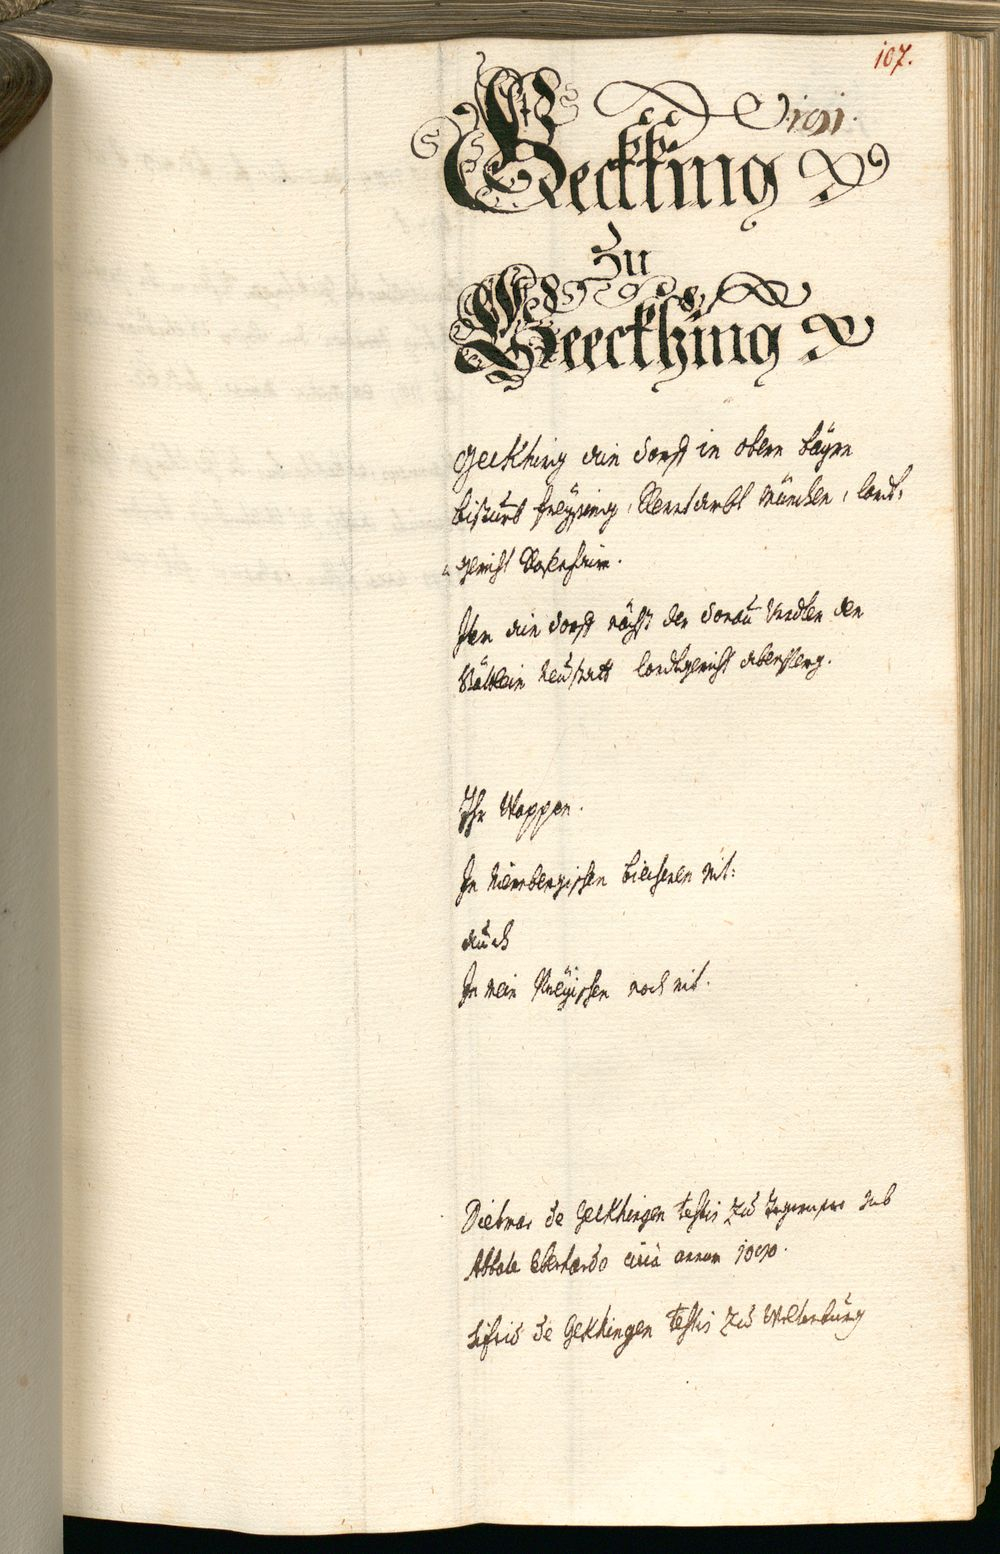 107.
191.
Geckhing
Zu
Geeckhing
Geckhing ain dorff in obern Bayrn
bistumb Freysing, Renntambt München, landt-
gericht
Item ain dorff nächst der Donau
Stättlein Neustatt landtgericht Abensperg.
Ihr Wappen.
In Nürnbergischen biecheren nit:
auch
In mein noch nit.
Dietmar de Geckhingen testis Zu Tegernsee sub
Abbate Eberhardo circa annum 1090.
Sifrid de Gekhingen testis Zu Weltenburg